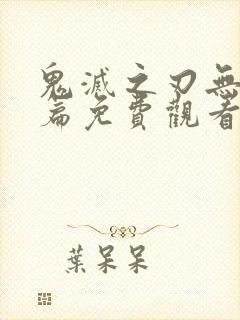 鬼滅之刃無
篇免費觀看
葉呆呆